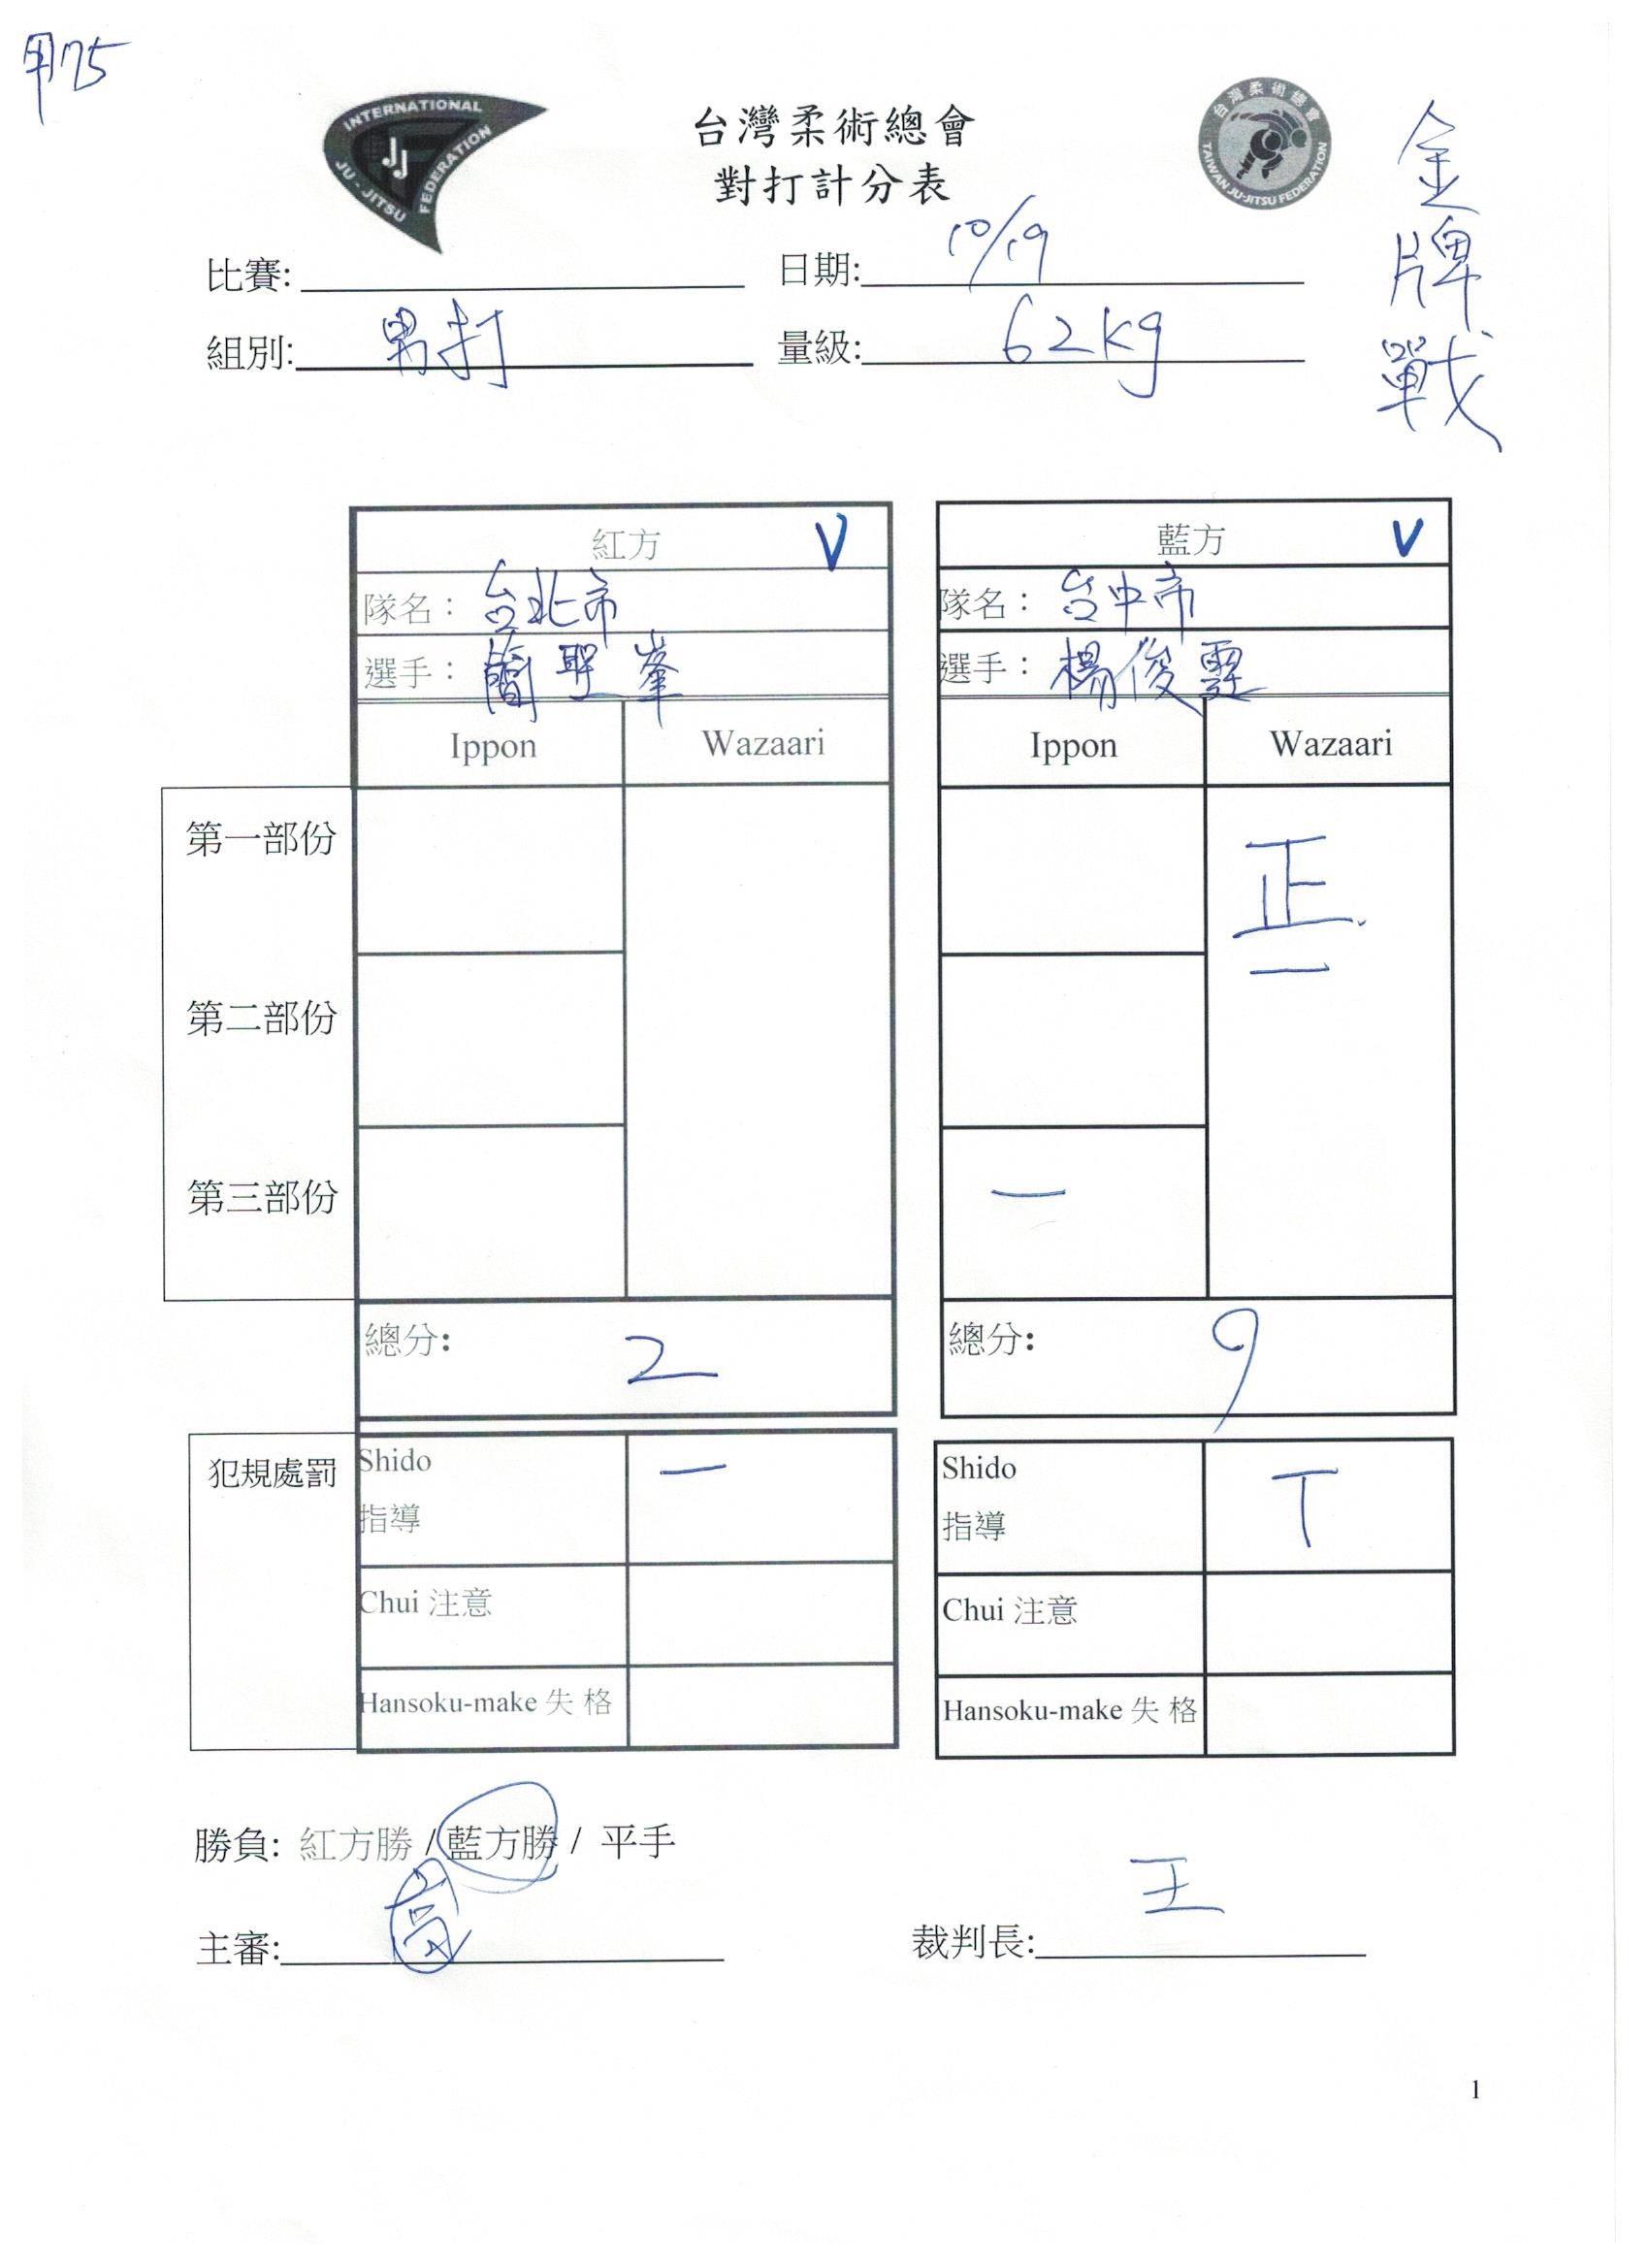 甲25
INTERNATIONAL JU-JITSU FEDERATION
JJ
台灣柔術總會
對打計分表
台灣柔術總會
TAIWAN JU-JITSU FEDERATION
金牌戰
比賽:
日期: 10/19
組別: 男打
量級: 62kg
紅方 V
藍方 V
隊名： 台北市
隊名： 台中市
選手： 簡聖峯
選手： 楊俊霆
Ippon Wazaari
Ippon Wazaari
第一部份
正
一
第二部份
第三部份
一
總分: 2
總分: 9
犯規處罰
Shido 一
指導
Chui 注意
Hansoku-make 失 格
Shido T
指導
Chui 注意
Hansoku-make 失 格
勝負: 紅方勝 / 藍方勝 / 平手
主審:
裁判長: 王
1